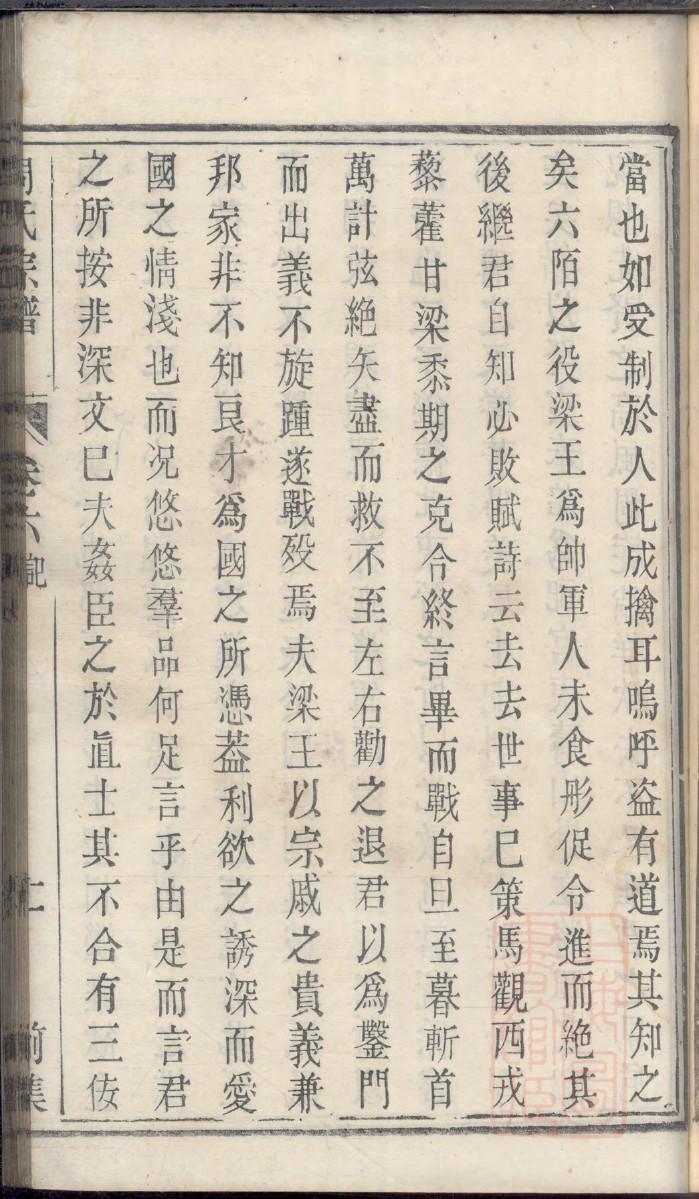 當也如受制於人此成擒耳嗚呼盗有道焉其知之
矣六陌之役梁王爲帥軍人未食肜促令進而絶其
後繼君自知必敗賦詩云去去世事巳策馬觀西戎
藜藿甘梁黍期之克令終言畢而戰自旦至暮斬首
萬計弦絶矢盡而救不至左右勸之退君以爲鑿門
而出義不旋踵遂戰殁焉夫梁王以宗戚之貴義兼
邦家非不知良才爲國之所憑葢利欲之誘深而愛
國之情淺也而况悠悠羣品何足言乎由是而言君
之所按非深文巳夫姦臣之於眞士其不合有三佞
周氏宗譜 卷六 記 前集